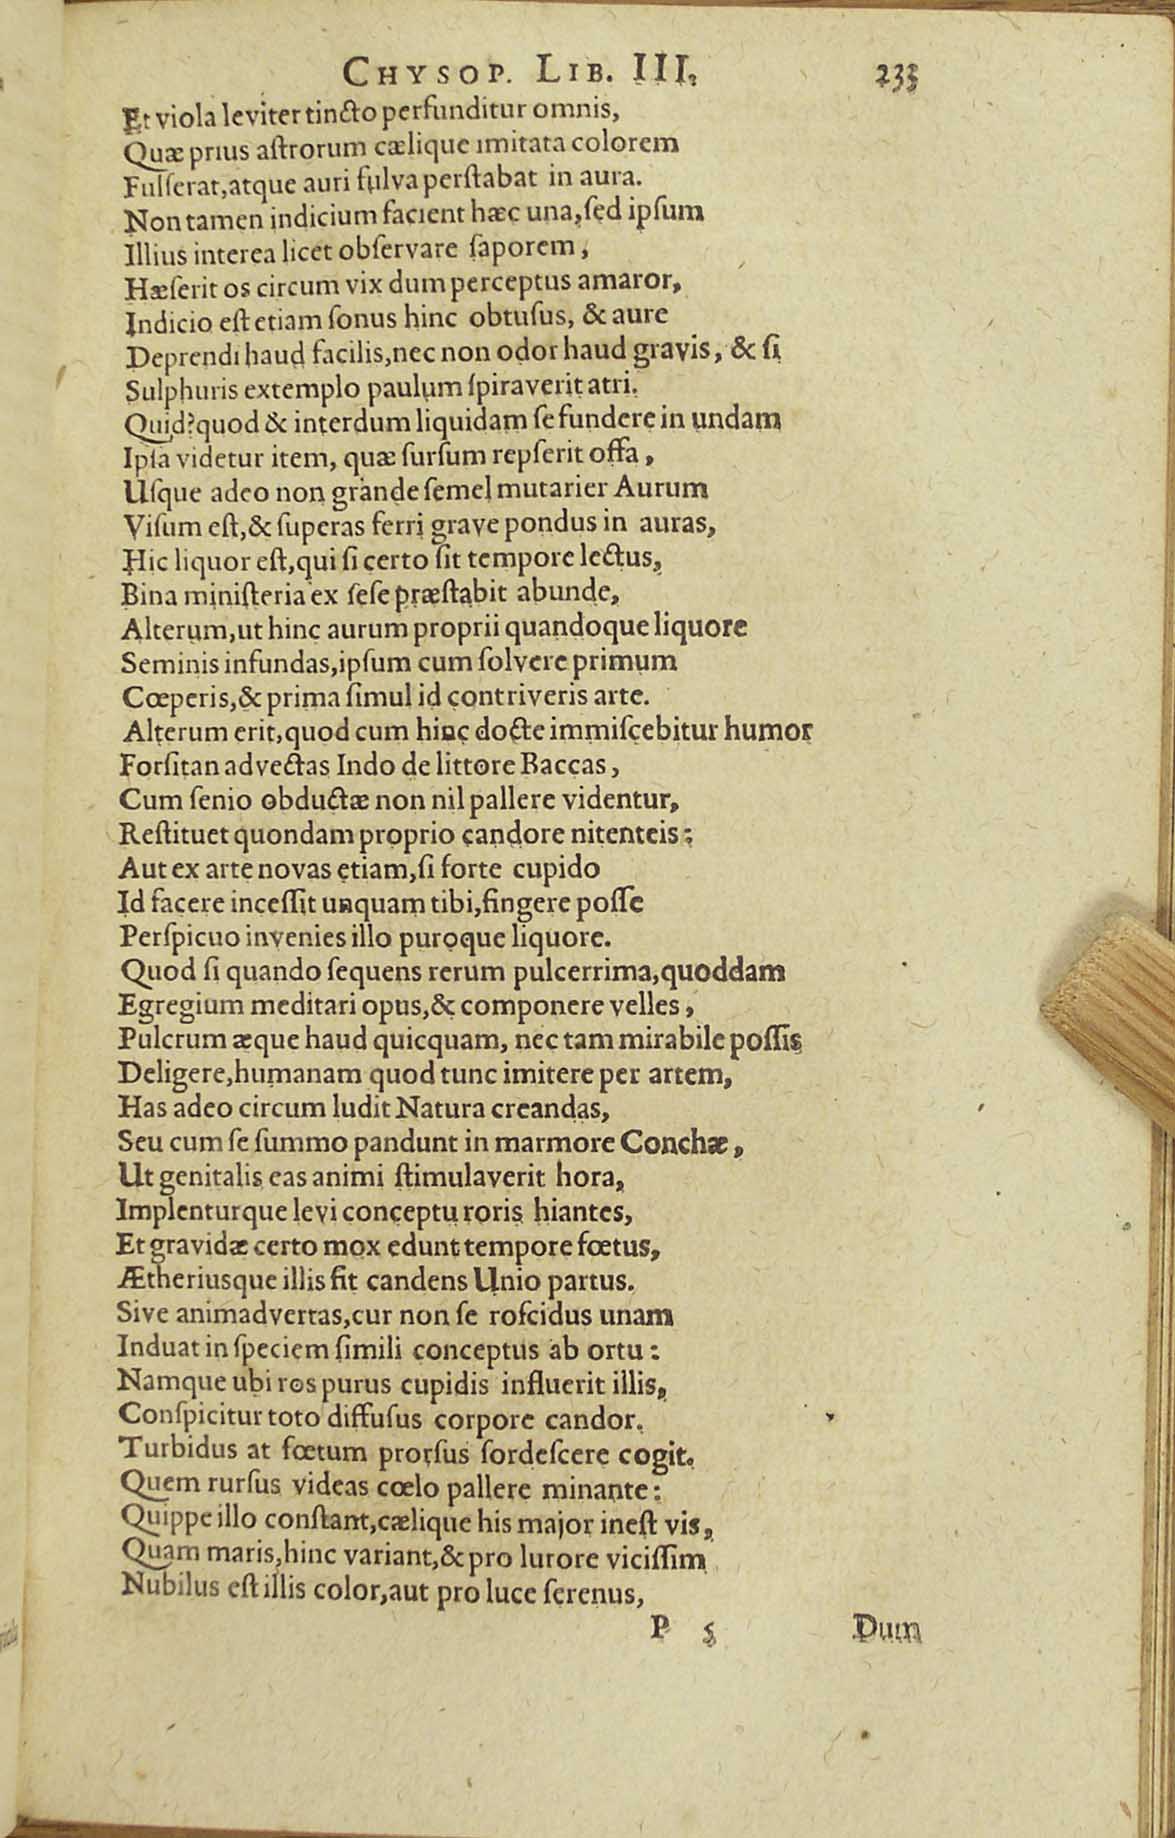 CHYSOP. LIB. III. 233
Et viola leviter tincto perfunditur omnis,
Quæ prius aſtrorum cælique imitata colorem
Fulſerat, atque auri fulva perſtabat in aura.
Non tamen indicium facient hæc una, ſed ipſum
Illius interea licet obſervare ſaporem,
Hæſerit os circum vix dum perceptus amaror,
Indicio eſt etiam ſonus hinc obtuſus, & aure
Deprendi haud facilis, nec non odor haud gravis, & ſi
Sulphuris extemplo paulum ſpiraverit atri.
Quid? quod & interdum liquidam ſe fundere in undam
Ipſa videtur item, quæ ſurſum repſerit offa,
Uſque adeo non grande ſemel mutarier Aurum
Viſum eſt, & ſuperas ferri grave pondus in auras,
Hic liquor eſt, qui ſi certo ſit tempore lectus,
Bina miniſteria ex ſeſe præſtabit abunde,
Alterum, ut hinc aurum proprii quandoque liquore
Seminis infundas, ipſum cum ſolvere primum
Cœperis, & prima ſimul id contriveris arte.
Alterum erit, quod cum hinc docte immiſcebitur humor
Forſitan advectas Indo de littore Baccas,
Cum ſenio obductæ non nil pallere videntur,
Reſtituet quondam proprio candore nitenteis:
Aut ex arte novas etiam, ſi forte cupido
Id facere inceſſit unquam tibi, fingere poſſe
Perſpicuo invenies illo puroque liquore.
Quod ſi quando ſequens rerum pulcerrima, quoddam
Egregium meditari opus, & componere velles,
Pulcrum æque haud quicquam, nec tam mirabile poſſis
Deligere, humanam quod tunc imitere per artem,
Has adeo circum ludit Natura creandas,
Seu cum ſe ſummo pandunt in marmore Conchæ,
Ut genitalis eas animi ſtimulaverit hora,
Implenturque levi conceptu roris hiantes,
Et gravidæ certo mox edunt tempore fœtus,
Ætheriusque illis fit candens Unio partus.
Sive animadvertas, cur non ſe roſcidus unam
Induat in ſpeciem ſimili conceptus ab ortu:
Namque ubi ros purus cupidis influerit illis,
Conſpicitur toto diffuſus corpore candor.
Turbidus at fœtum prorſus ſordeſcere cogit.
Quem rurſus videas cœlo pallere minante:
Quippe illo conſtant, cælique his major ineſt vis,
Quam maris, hinc variant, & pro lurore viciſſim
Nubilus eſt illis color, aut pro luce ſerenus,
P 5 Dum